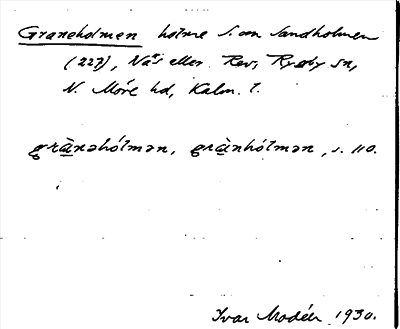 Graneholmen holme S. om Sandholmen
(227), Näs eller Rev, Ryssby sn,
N. Möre hd, Kalm. l.
grànəhólmən, grànhólmən, s. 110.
Ivar Modéer 1930.